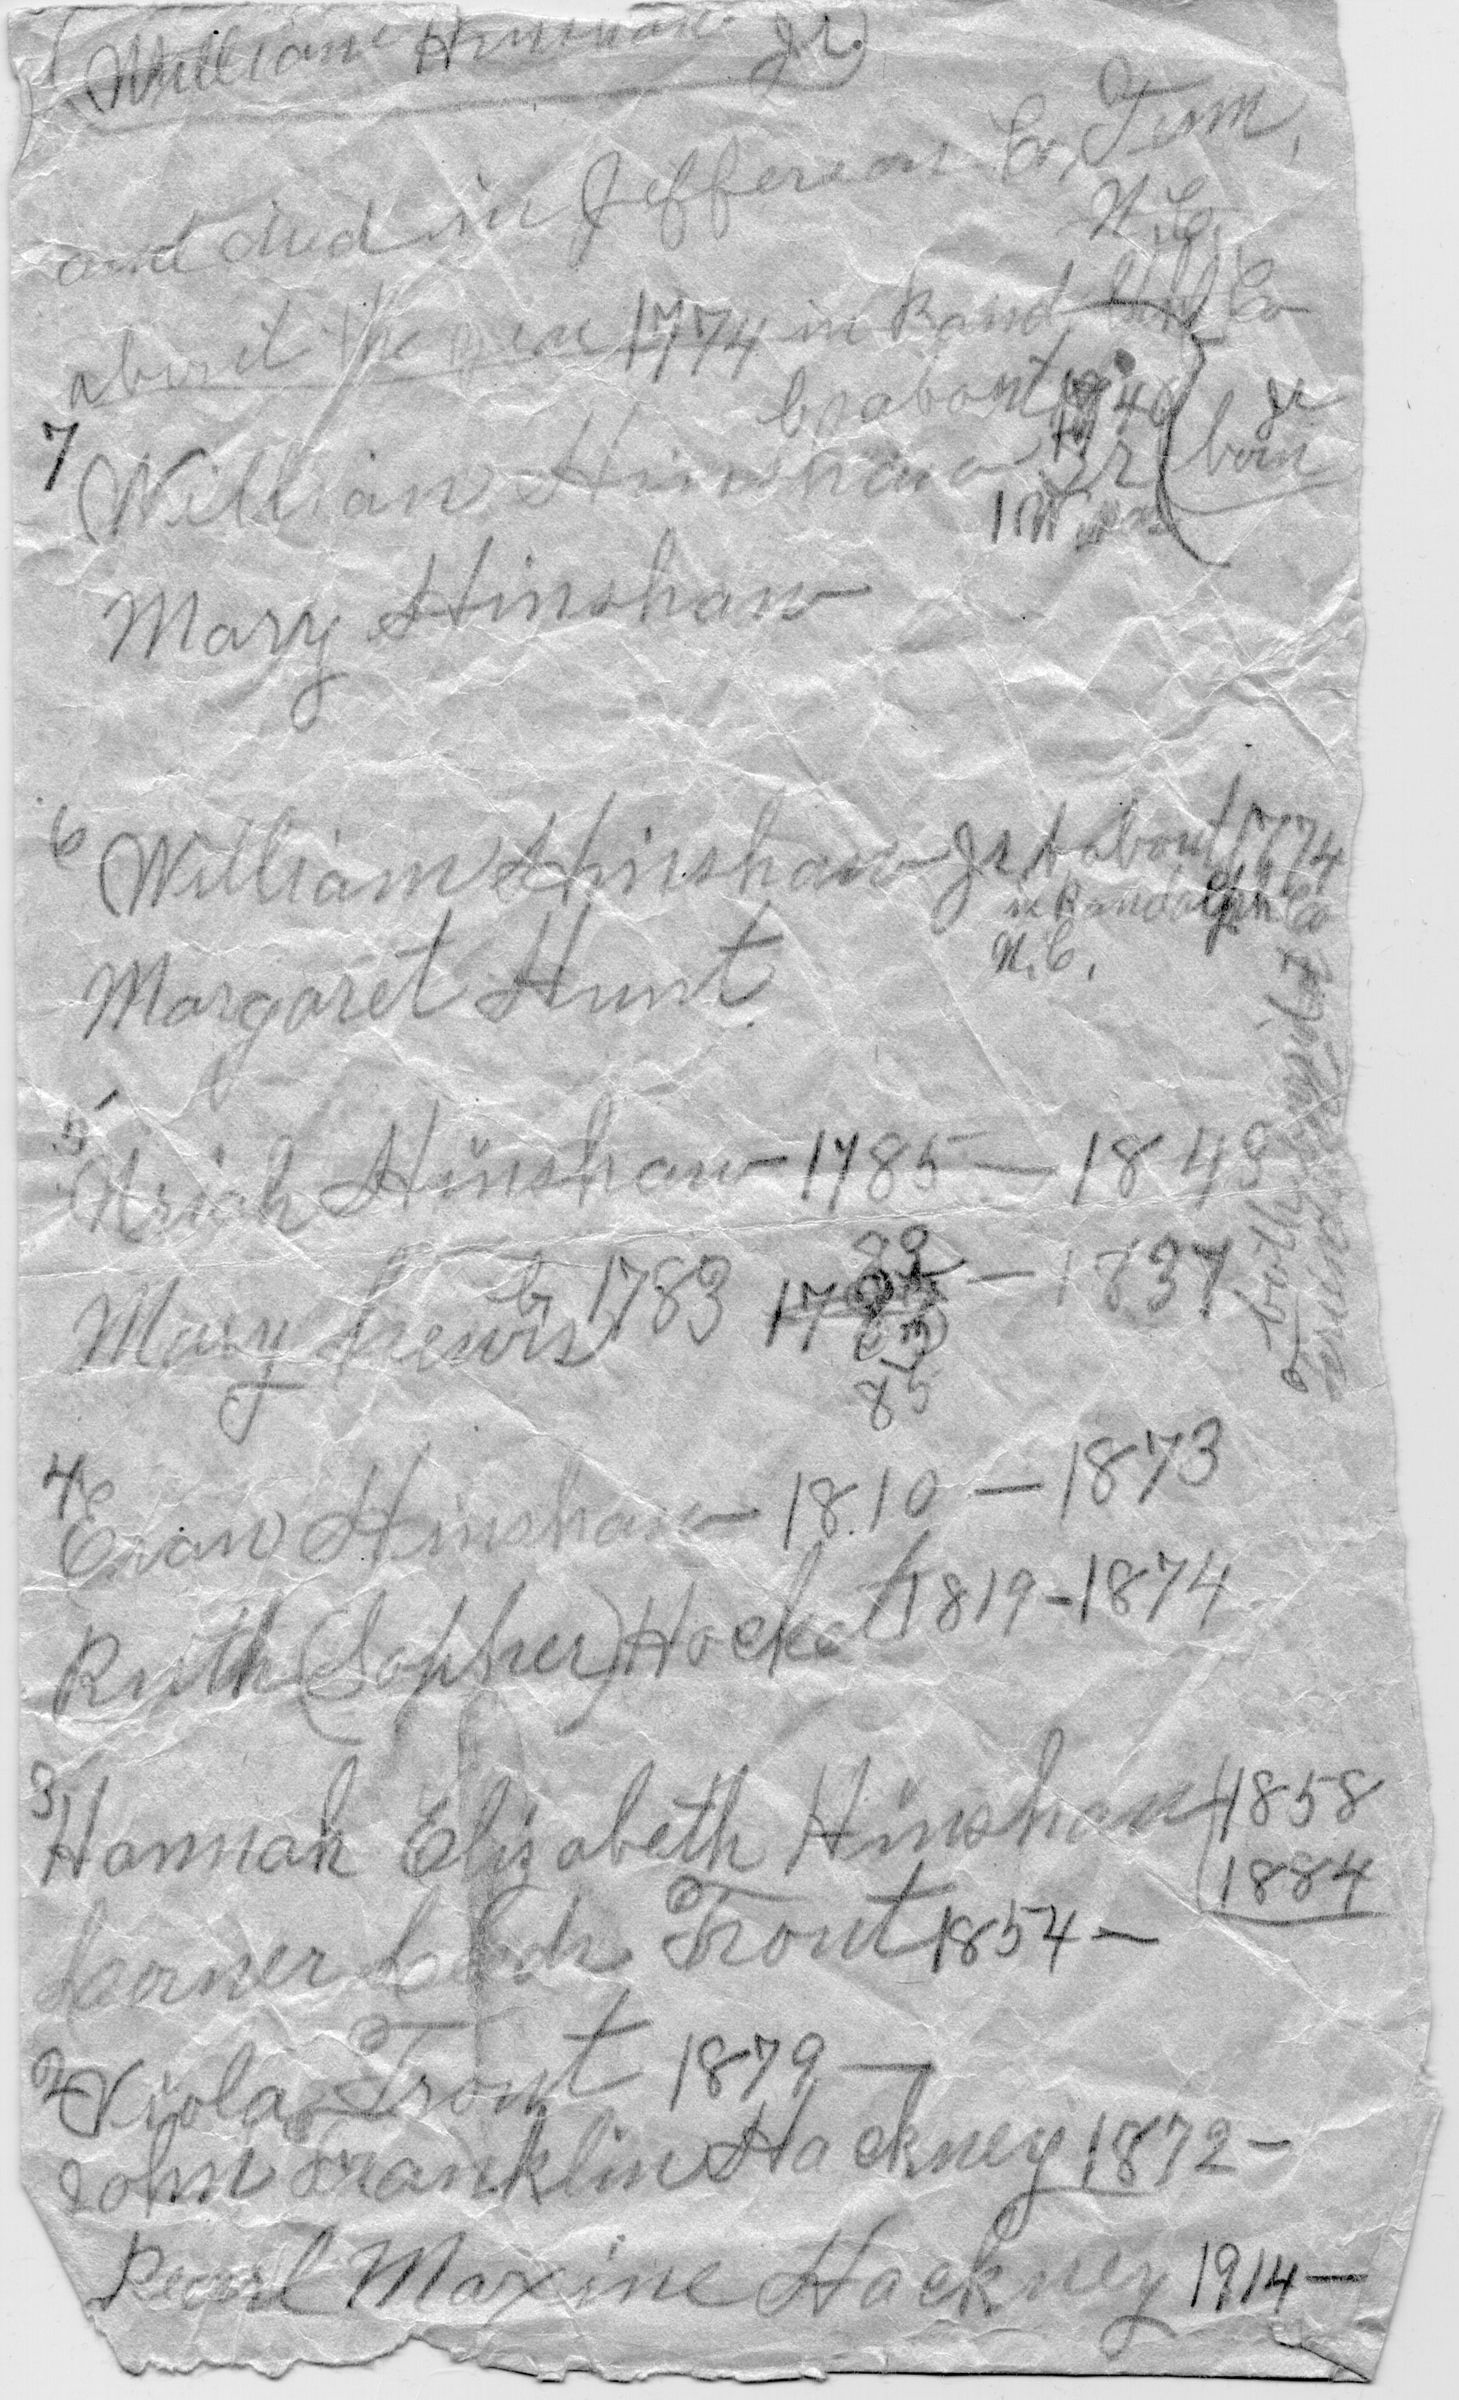 William Hinshaw Jr.
and died in Jefferson Co, Tenn,
N.C.
about the year 1774 in Rand Co
b about 46
7 William Hinshaw Sr
Jr
born
Mary Hinshaw
6 William Hinshaw Jr b about 1774
in Randolph Co
N.C.
Margaret Hunt
5 Uriah Hinshaw 1785 — 1849
Mary Lewis b 1783 — 1837
85
4 Evan Hinshaw 1810 — 1873
Ruth (Sopher) Hocket 1819-1874
3 Hannah Elizabeth Hinshaw 1858
1884
Trout 1854 —
2 Viola Trout 1879 —
John Franklin Hackney 1872 —
Pearl Maxine Hackney 1914 —